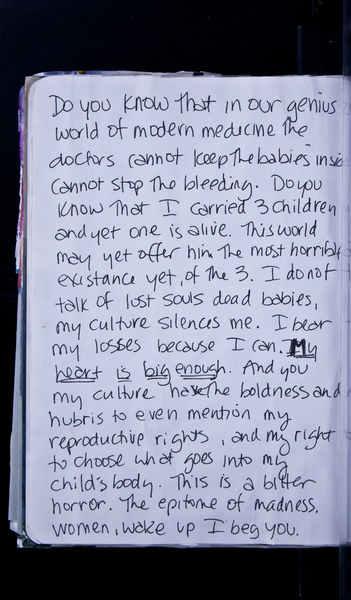 Do you know that in our genius
world of modern medicine the
doctors cannot keep the babies inside
cannot stop the bleeding. Do you
know that I carried 3 children
and yet one is alive. This world
may yet offer him the most horrible
existance yet, of the 3. I do not
talk of lost souls dead babies,
my culture silences me. I bear
my losses because I can. My
heart is big enough. And you
my culture have the boldness and
hubris to even mention my
reproductive rights, and my right
to choose what goes into my
child's body. This is a bitter
horror. The epitome of madness.
women, wake up I beg you.